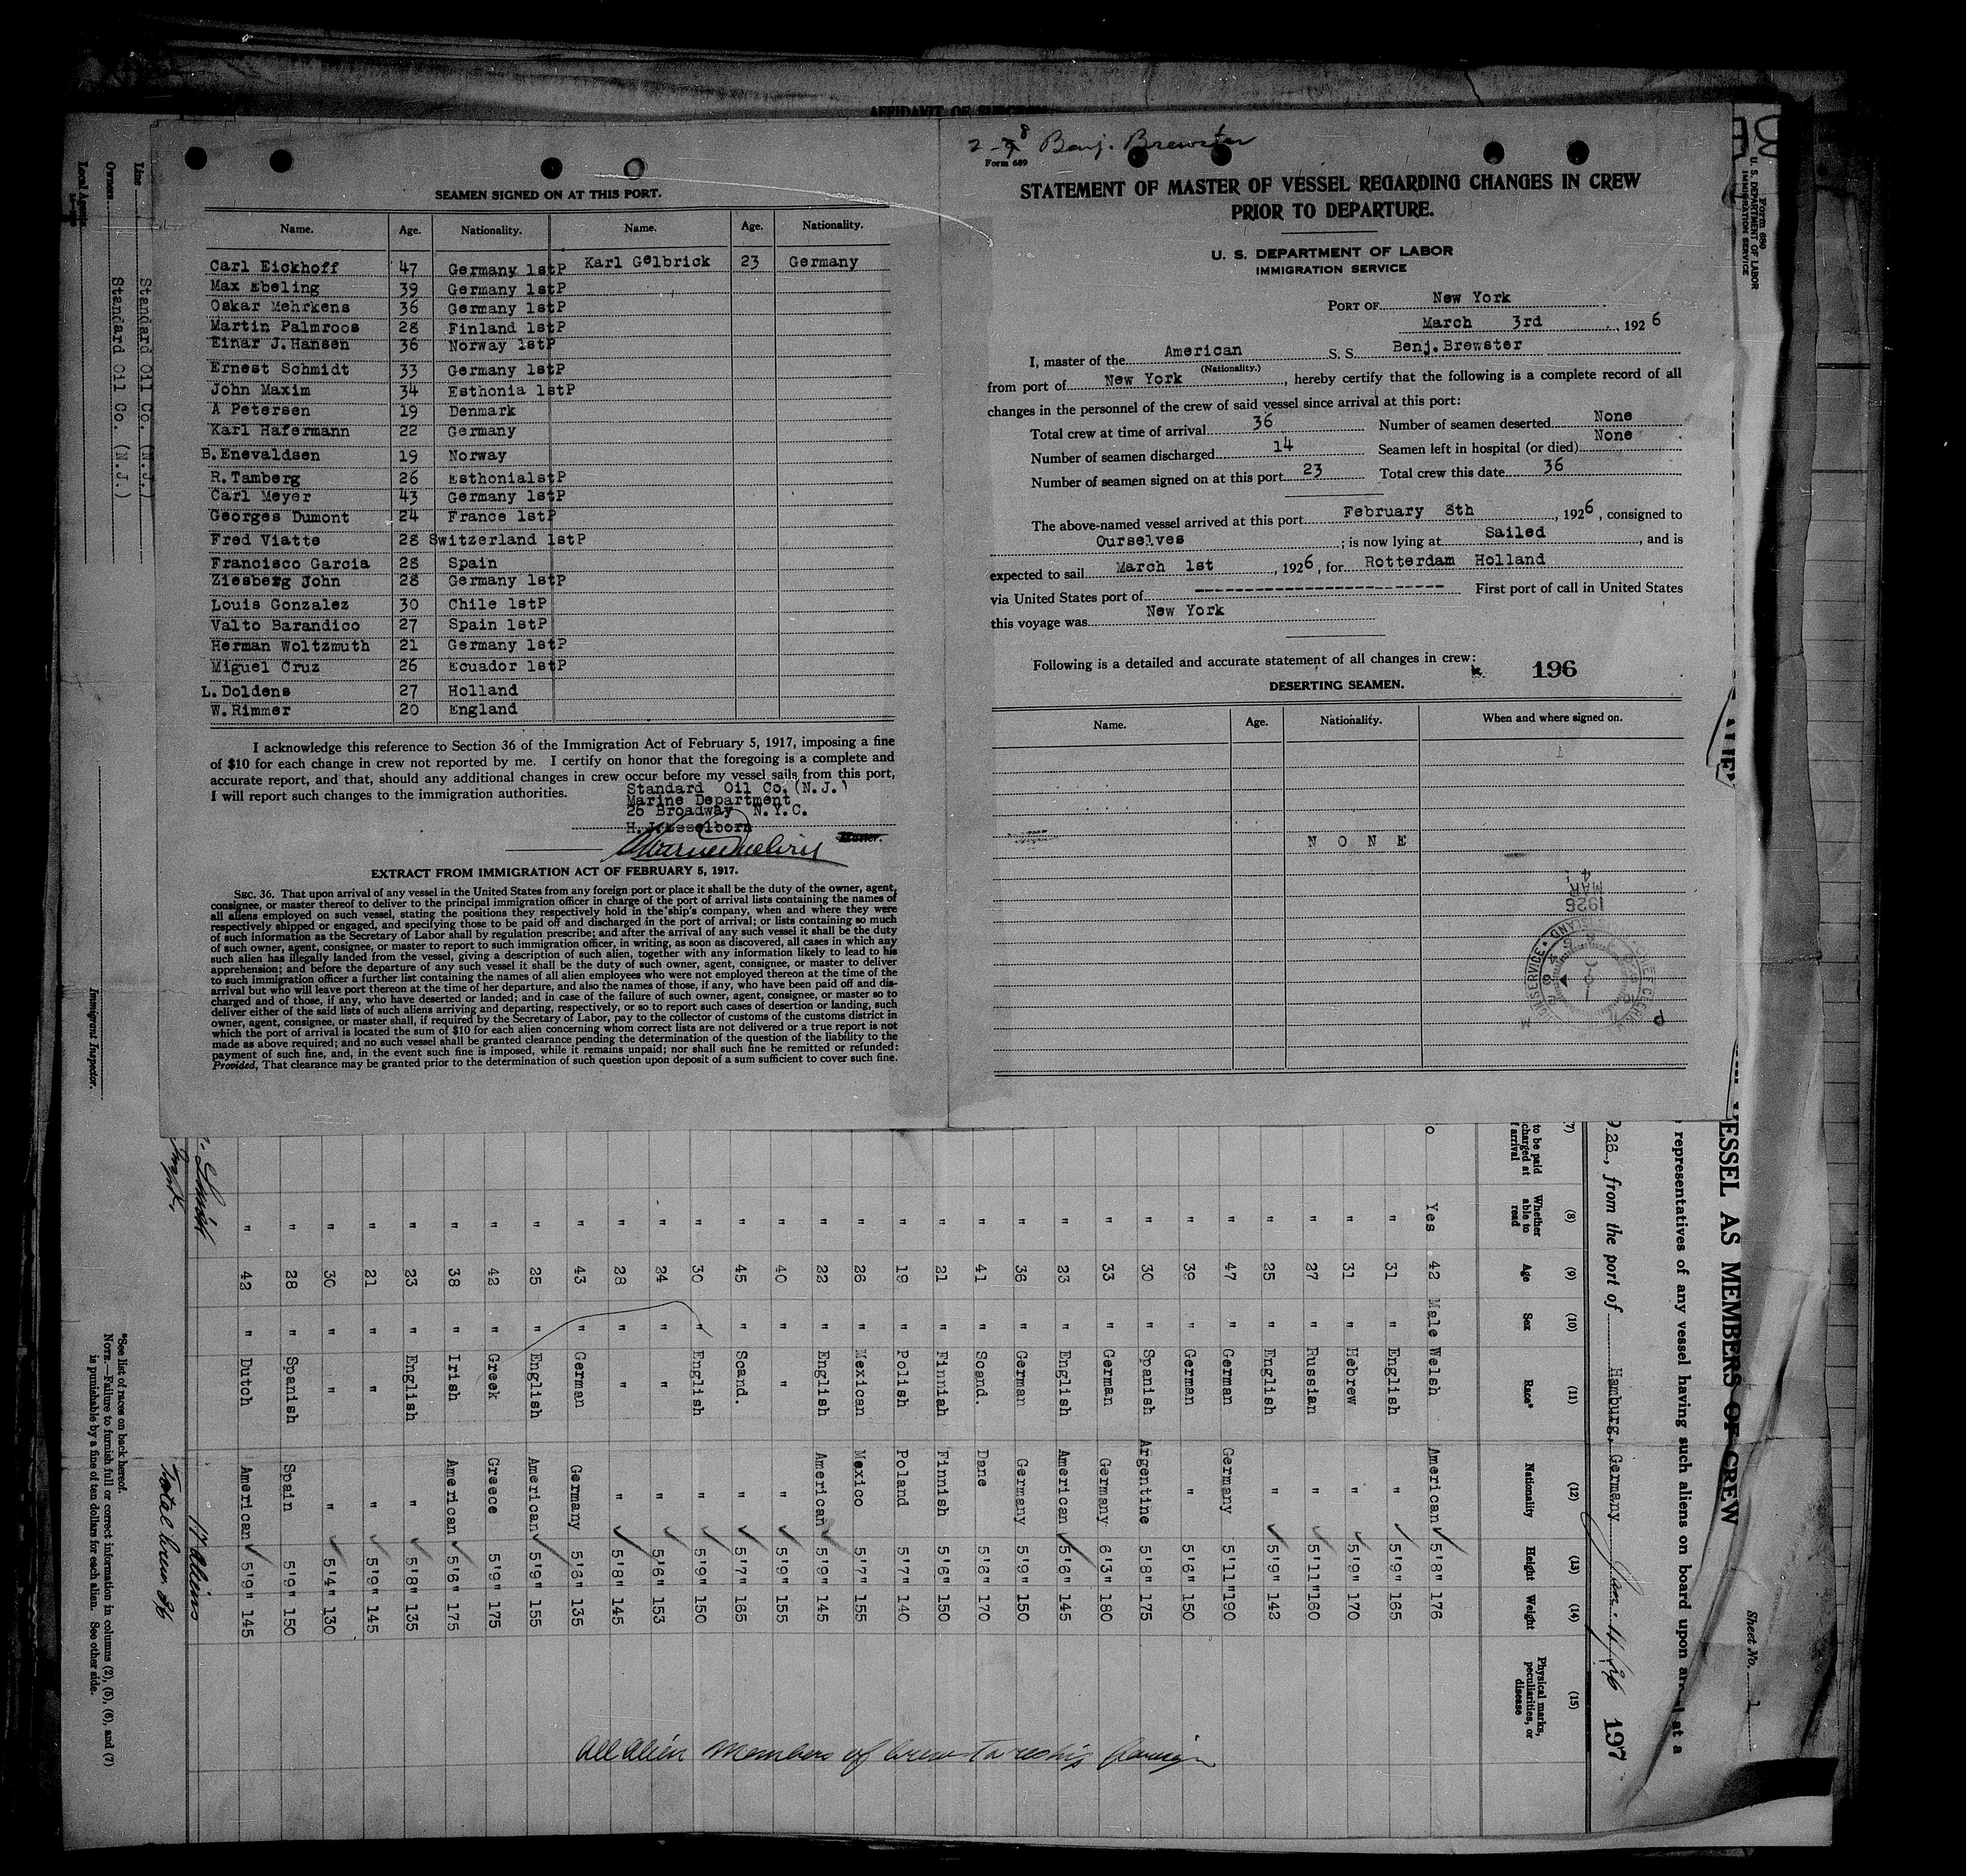 AFFIDAVIT OF SURGEON
SEAMEN SIGNED ON AT THIS PORT.
Name. Age. Nationality. Name. Age. Nationality.
Carl Eickhoff 47 Germany 1stP Karl Gelbrick 23 Germany
Max Ebeling 39 Germany 1stP
Oskar Mehrkens 36 Germany 1stP
Martin Palmroos 28 Finland 1stP
Einar J.Hansen 36 Norway 1stP
Ernest Schmidt 33 Germany 1stP
John Maxim 34 Esthonia 1stP
A Petersen 19 Denmark
Karl Hafermann 22 Germany
B.Enevaldsen 19 Norway
R.Tamberg 26 Esthonia1stP
Carl Meyer 43 Germany 1stP
Georges Dumont 24 France 1stP
Fred Viatte 28 Switzerland 1stP
Francisco Garcia 28 Spain
Ziesberg John 28 Germany 1stP
Louis Gonzalez 30 Chile 1stP
Valto Barandico 27 Spain 1stP
Herman Woltzmuth 21 Germany 1stP
Miguel Cruz 26 Ecuador 1stP
L.Doldens 27 Holland
W.Rimmer 20 England
I acknowledge this reference to Section 36 of the Immigration Act of February 5, 1917, imposing a fine
of $10 for each change in crew not reported by me. I certify on honor that the foregoing is a complete and
accurate report, and that, should any additional changes in crew occur before my vessel sails from this port,
I will report such changes to the immigration authorities.
Standard Oil Co.(N.J.)
Marine Department
26 Broadway N.Y.C.
H.J.Esselborn
Master.
EXTRACT FROM IMMIGRATION ACT OF FEBRUARY 5, 1917.
SEC. 36. That upon arrival of any vessel in the United States from any foreign port or place it shall be the duty of the owner, agent,
consignee, or master thereof to deliver to the principal immigration officer in charge of the port of arrival lists containing the names of
all aliens employed on such vessel, stating the positions they respectively hold in the ship's company, when and where they were
respectively shipped or engaged, and specifying those to be paid off and discharged in the port of arrival; or lists containing so much
of such information as the Secretary of Labor shall by regulation prescribe; and after the arrival of any such vessel it shall be the duty
of such owner, agent, consignee, or master to report to such immigration officer, in writing, as soon as discovered, all cases in which any
such alien has illegally landed from the vessel, giving a description of such alien, together with any information likely to lead to his
apprehension; and before the departure of any such vessel it shall be the duty of such owner, agent, consignee, or master to deliver
to such immigration officer a further list containing the names of all alien employees who were not employed thereon at the time of the
arrival but who will leave port thereon at the time of her departure, and also the names of those, if any, who have been paid off and dis-
charged and of those, if any, who have deserted or landed; and in case of the failure of such owner, agent, consignee, or master so to
deliver either of the said lists of such aliens arriving and departing, respectively, or so to report such cases of desertion or landing, such
owner, agent, consignee, or master shall, if required by the Secretary of Labor, pay to the collector of customs of the customs district in
which the port of arrival is located the sum of $10 for each alien concerning whom correct lists are not delivered or a true report is not
made as above required; and no such vessel shall be granted clearance pending the determination of the question of the liability to the
payment of such fine, and, in the event such fine is imposed, while it remains unpaid; nor shall such fine be remitted or refunded:
Provided, That clearance may be granted prior to the determination of such question upon deposit of a sum sufficient to cover such fine.
2-8 Benj. Brewster
Form 689
STATEMENT OF MASTER OF VESSEL REGARDING CHANGES IN CREW
PRIOR TO DEPARTURE.
U. S. DEPARTMENT OF LABOR
IMMIGRATION SERVICE
PORT OF New York
March 3rd, 1926
I, master of the American S. S. Benj.Brewster
(Nationality.)
from port of New York, hereby certify that the following is a complete record of all
changes in the personnel of the crew of said vessel since arrival at this port:
Total crew at time of arrival 36 Number of seamen deserted None
Number of seamen discharged 14 Seamen left in hospital (or died) None
Number of seamen signed on at this port 23 Total crew this date 36
The above-named vessel arrived at this port February 8th, 1926, consigned to
Ourselves; is now lying at Sailed, and is
expected to sail March 1st, 1926, for Rotterdam Holland
via United States port of ---------- First port of call in United States
this voyage was New York
Following is a detailed and accurate statement of all changes in crew:
196
DESERTING SEAMEN.
Name. Age. Nationality. When and where signed on.
N O N E
1926
MAR
4
Line Standard Oil Co. (N.J.)
Owners Standard Oil Co. (N.J.)
Local Agents
Immigrant Inspector.
Form 689
U. S. DEPARTMENT OF LABOR
IMMIGRATION SERVICE
Sheet No. 1
VESSEL AS MEMBERS OF CREW
representatives of any vessel having such aliens on board upon arrival at a
1926, from the port of Hamburg, Germany Jan. 11/26 197
(7) (8) (9) (10) (11) (12) (13) (14) (15)
to be paid
charged at
f arrival
Whether able to read Age Sex Race* Nationality Height Weight Physical marks, peculiarities, or disease
o Yes 42 Male Welsh American 5'8" 176
" 31 " English " 5'9" 165
" 31 " Hebrew " 5'9" 170
" 27 " Russian " 5'11" 160
" 25 " English " 5'9" 142
" 47 " German Germany 5'11" 190
" 39 " German " 5'6" 150
" 30 " Spanish Argentine 5'8" 175
" 33 " German Germany 6'3" 180
" 23 " English American 5'6" 145
" 36 " German Germany 5'9" 150
" 41 " Scand. Dane 5'6" 170
" 21 " Finnish Finnish 5'6" 150
" 19 " Polish Poland 5'7" 140
" 26 " Mexican Mexico 5'7" 155
" 22 " English American 5'9" 145
" 40 " " " 5'9" 155
" 45 " Scand. " 5'7" 165
" 30 " English " 5'9" 150
" 24 " " " 5'6" 153
" 28 " " " 5'8" 145
" 43 " German Germany 5'6" 135
" 25 " English American 5'9" 155
" 42 " Greek Greece 5'9" 175
" 38 " Irish American 5'6" 175
" 23 " English " 5'8" 135
" 21 " " " 5'9" 145
" 30 " " " 5'4" 130
" 28 " Spanish Spain 5'9" 150
" 42 " Dutch American 5'9" 145
All alien members of crew to reship foreign
17 aliens
Total crew 36
*See list of races on back hereof.
NOTE.—Failure to furnish full or correct information in columns (2), (5), (6), and (7)
is punishable by a fine of ten dollars for each alien. See other side.